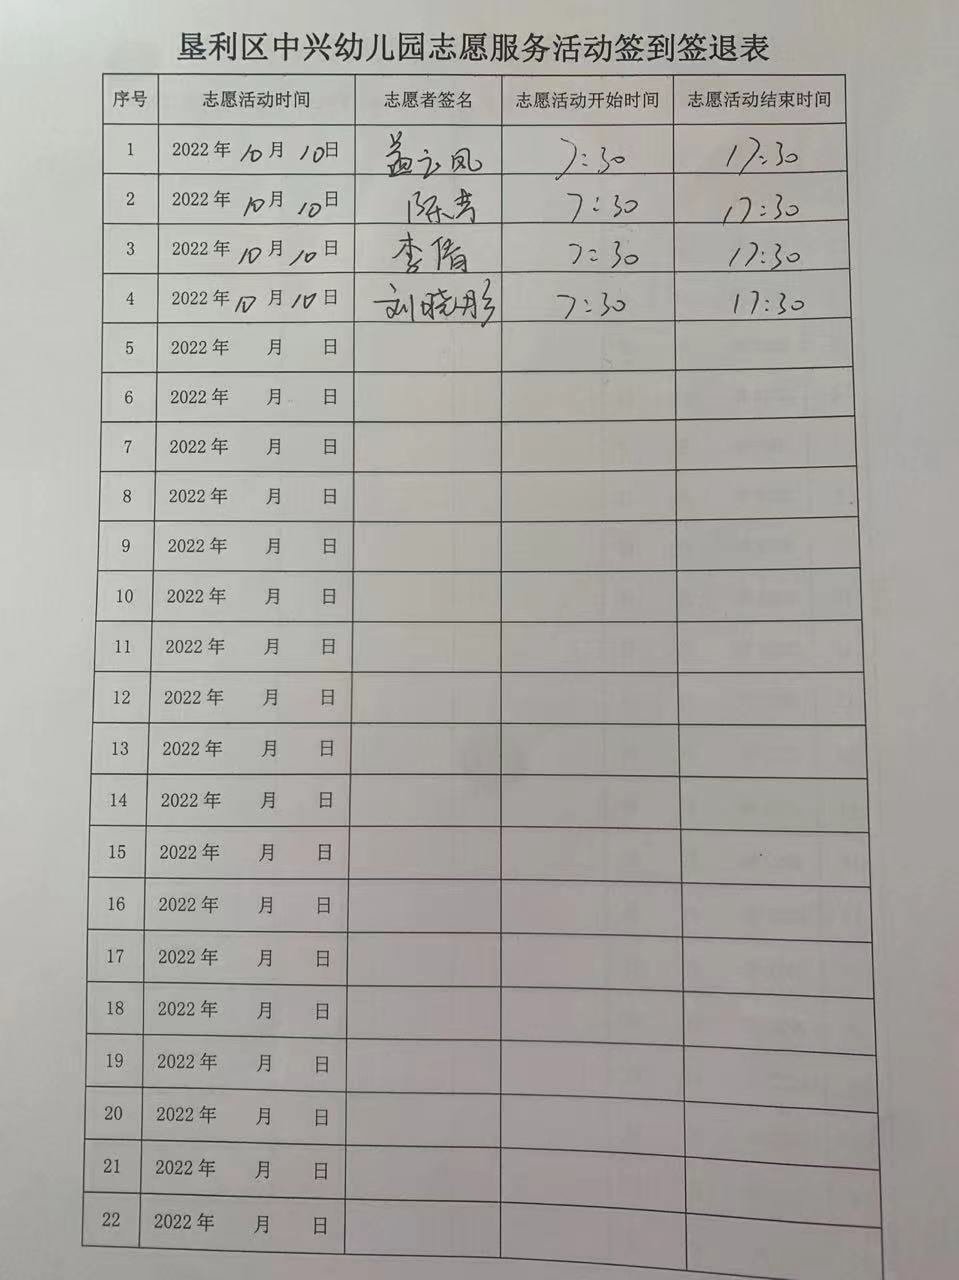 垦利区中兴幼儿园志愿服务活动签到签退表
序号 志愿活动时间 志愿者签名 志愿活动开始时间 志愿活动结束时间
1 2022年10月10日 盖云凤 7:30 17:30
2 2022年10月10日 陈 7:30 17:30
3 2022年10月10日 李倩 7:30 17:30
4 2022年10月10日 刘晓彤 7:30 17:30
5 2022年 月 日
6 2022年 月 日
7 2022年 月 日
8 2022年 月 日
9 2022年 月 日
10 2022年 月 日
11 2022年 月 日
12 2022年 月 日
13 2022年 月 日
14 2022年 月 日
15 2022年 月 日
16 2022年 月 日
17 2022年 月 日
18 2022年 月 日
19 2022年 月 日
20 2022年 月 日
21 2022年 月 日
22 2022年 月 日